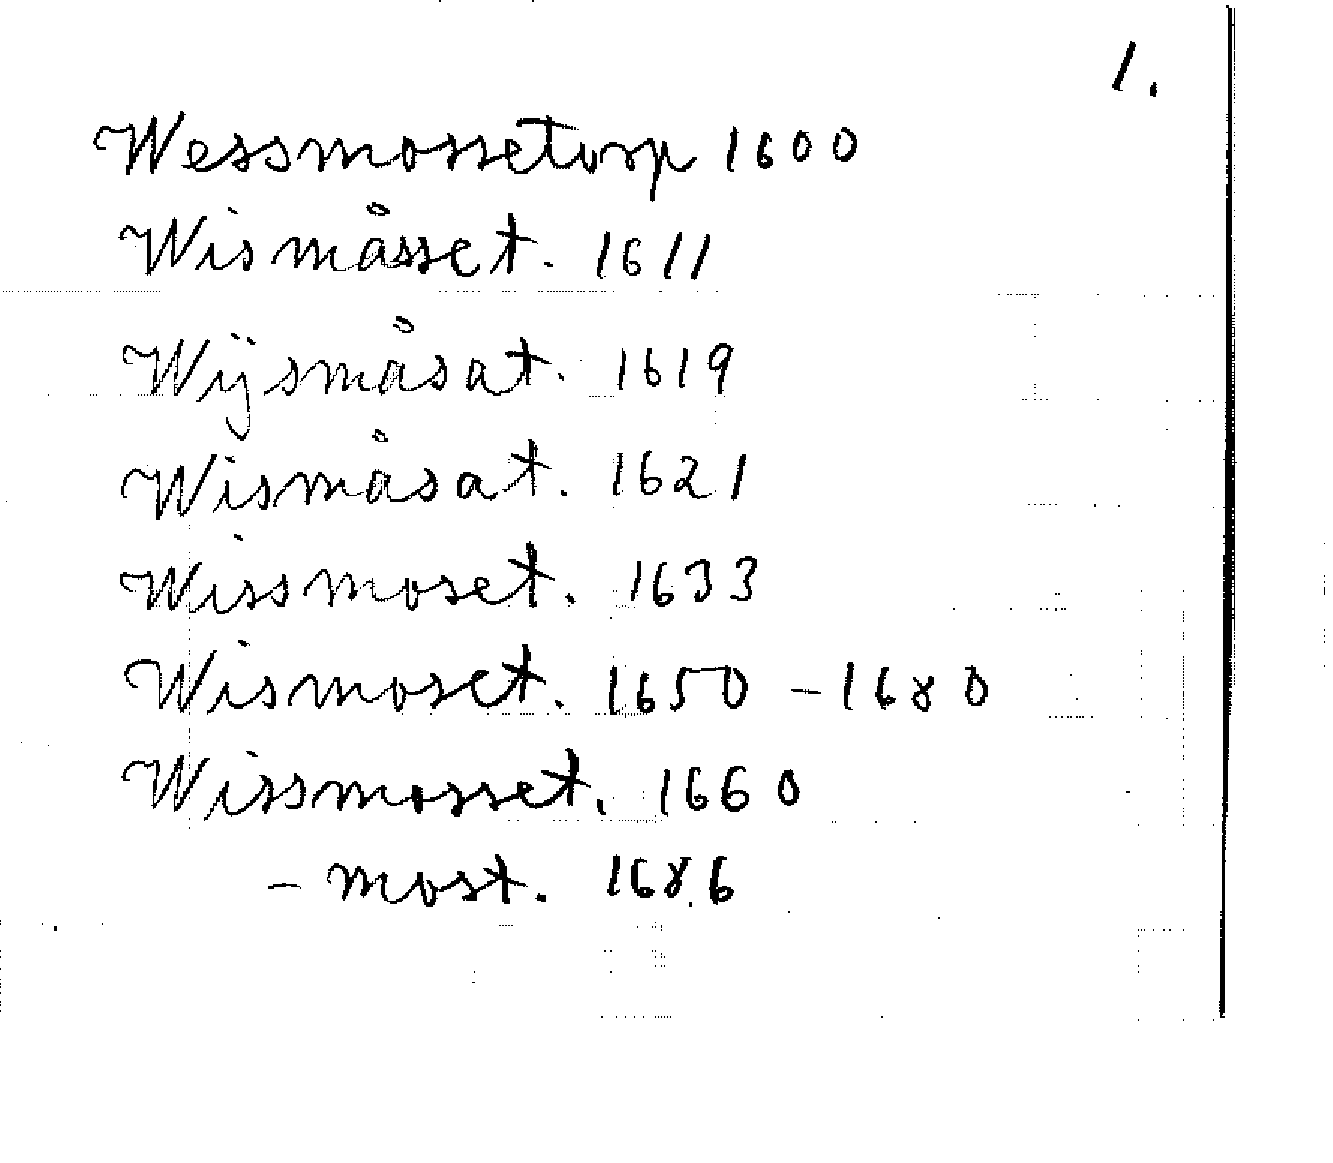 1.
Wessmossetorp 1600
Wismåsset. 1611
Wijsmåsat. 1619
Wismåsat. 1621
Wissmoset. 1633
Wismoset. 1650 - 1680
Wissmosset. 1660
- most. 1686